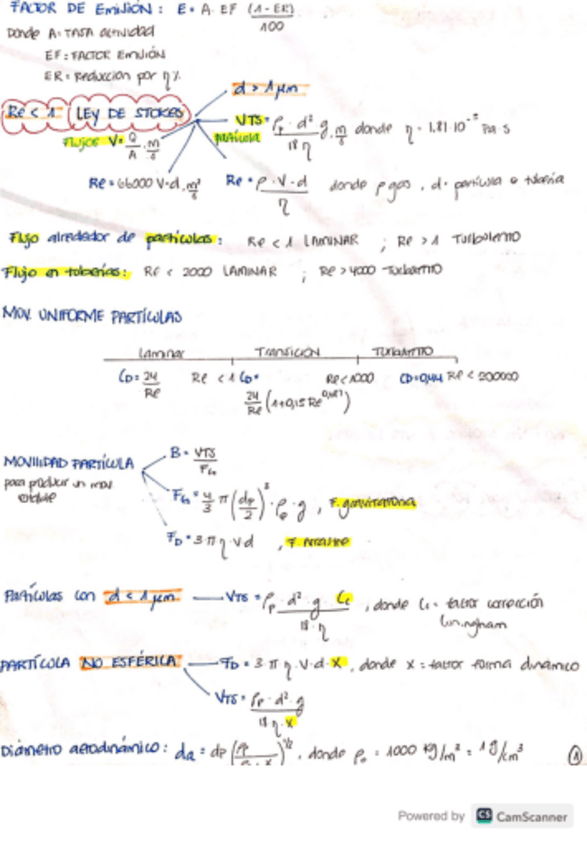 FACTOR DE EMISIÓN: E = A · EF (1-ER)/100
Donde A = TASA actividad
EF = FACTOR EMISIÓN
ER = Reducción por η %
d > 1 µm
Re < 1 LEY DE STOKES
VTS = ρp · d² · g / 18 η , m/s donde η = 1.81·10⁻⁵ Pa·s
partícula
Flujos V = Q/A , m/s
Re = 66000 V·d , m²/s
Re = ρ · V · d / η donde ρ gas , d = partícula o tubería
Flujo alrededor de partículas: Re < 1 LAMINAR ; Re > 1 Turbulento
Flujo en tuberías: Re < 2000 LAMINAR ; Re > 4000 Turbulento
MOV. UNIFORME PARTÍCULAS
Laminar TRANSICIÓN TURBULENTO
CD = 24/Re Re < 1 CD = 24/Re (1+0,15 Re^0,687) Re < 1000 CD = 0,44 Re < 200000
MOVILIDAD PARTÍCULA
para producir un mov
estable
B = VTS/FG
FG = 4/3 π (dp/2)³ · ρp · g , F. gravitatoria
FD = 3 π η · V · d , F. Arrastre
Partículas con d < 1 µm — VTS = ρp · d² · g · Cc / 18 · η , donde Cc = factor corrección
Cuningham
PARTÍCULA NO ESFÉRICA — FD = 3 π η · V · d · X , donde X = factor forma dinámico
VTS = ρp · d² · g / 18 η · X
Diámetro aerodinámico: da = dp (ρp / ρo · X)^1/2 , donde ρo = 1000 kg/m³ = 1 g/cm³
1
Powered by CS CamScanner